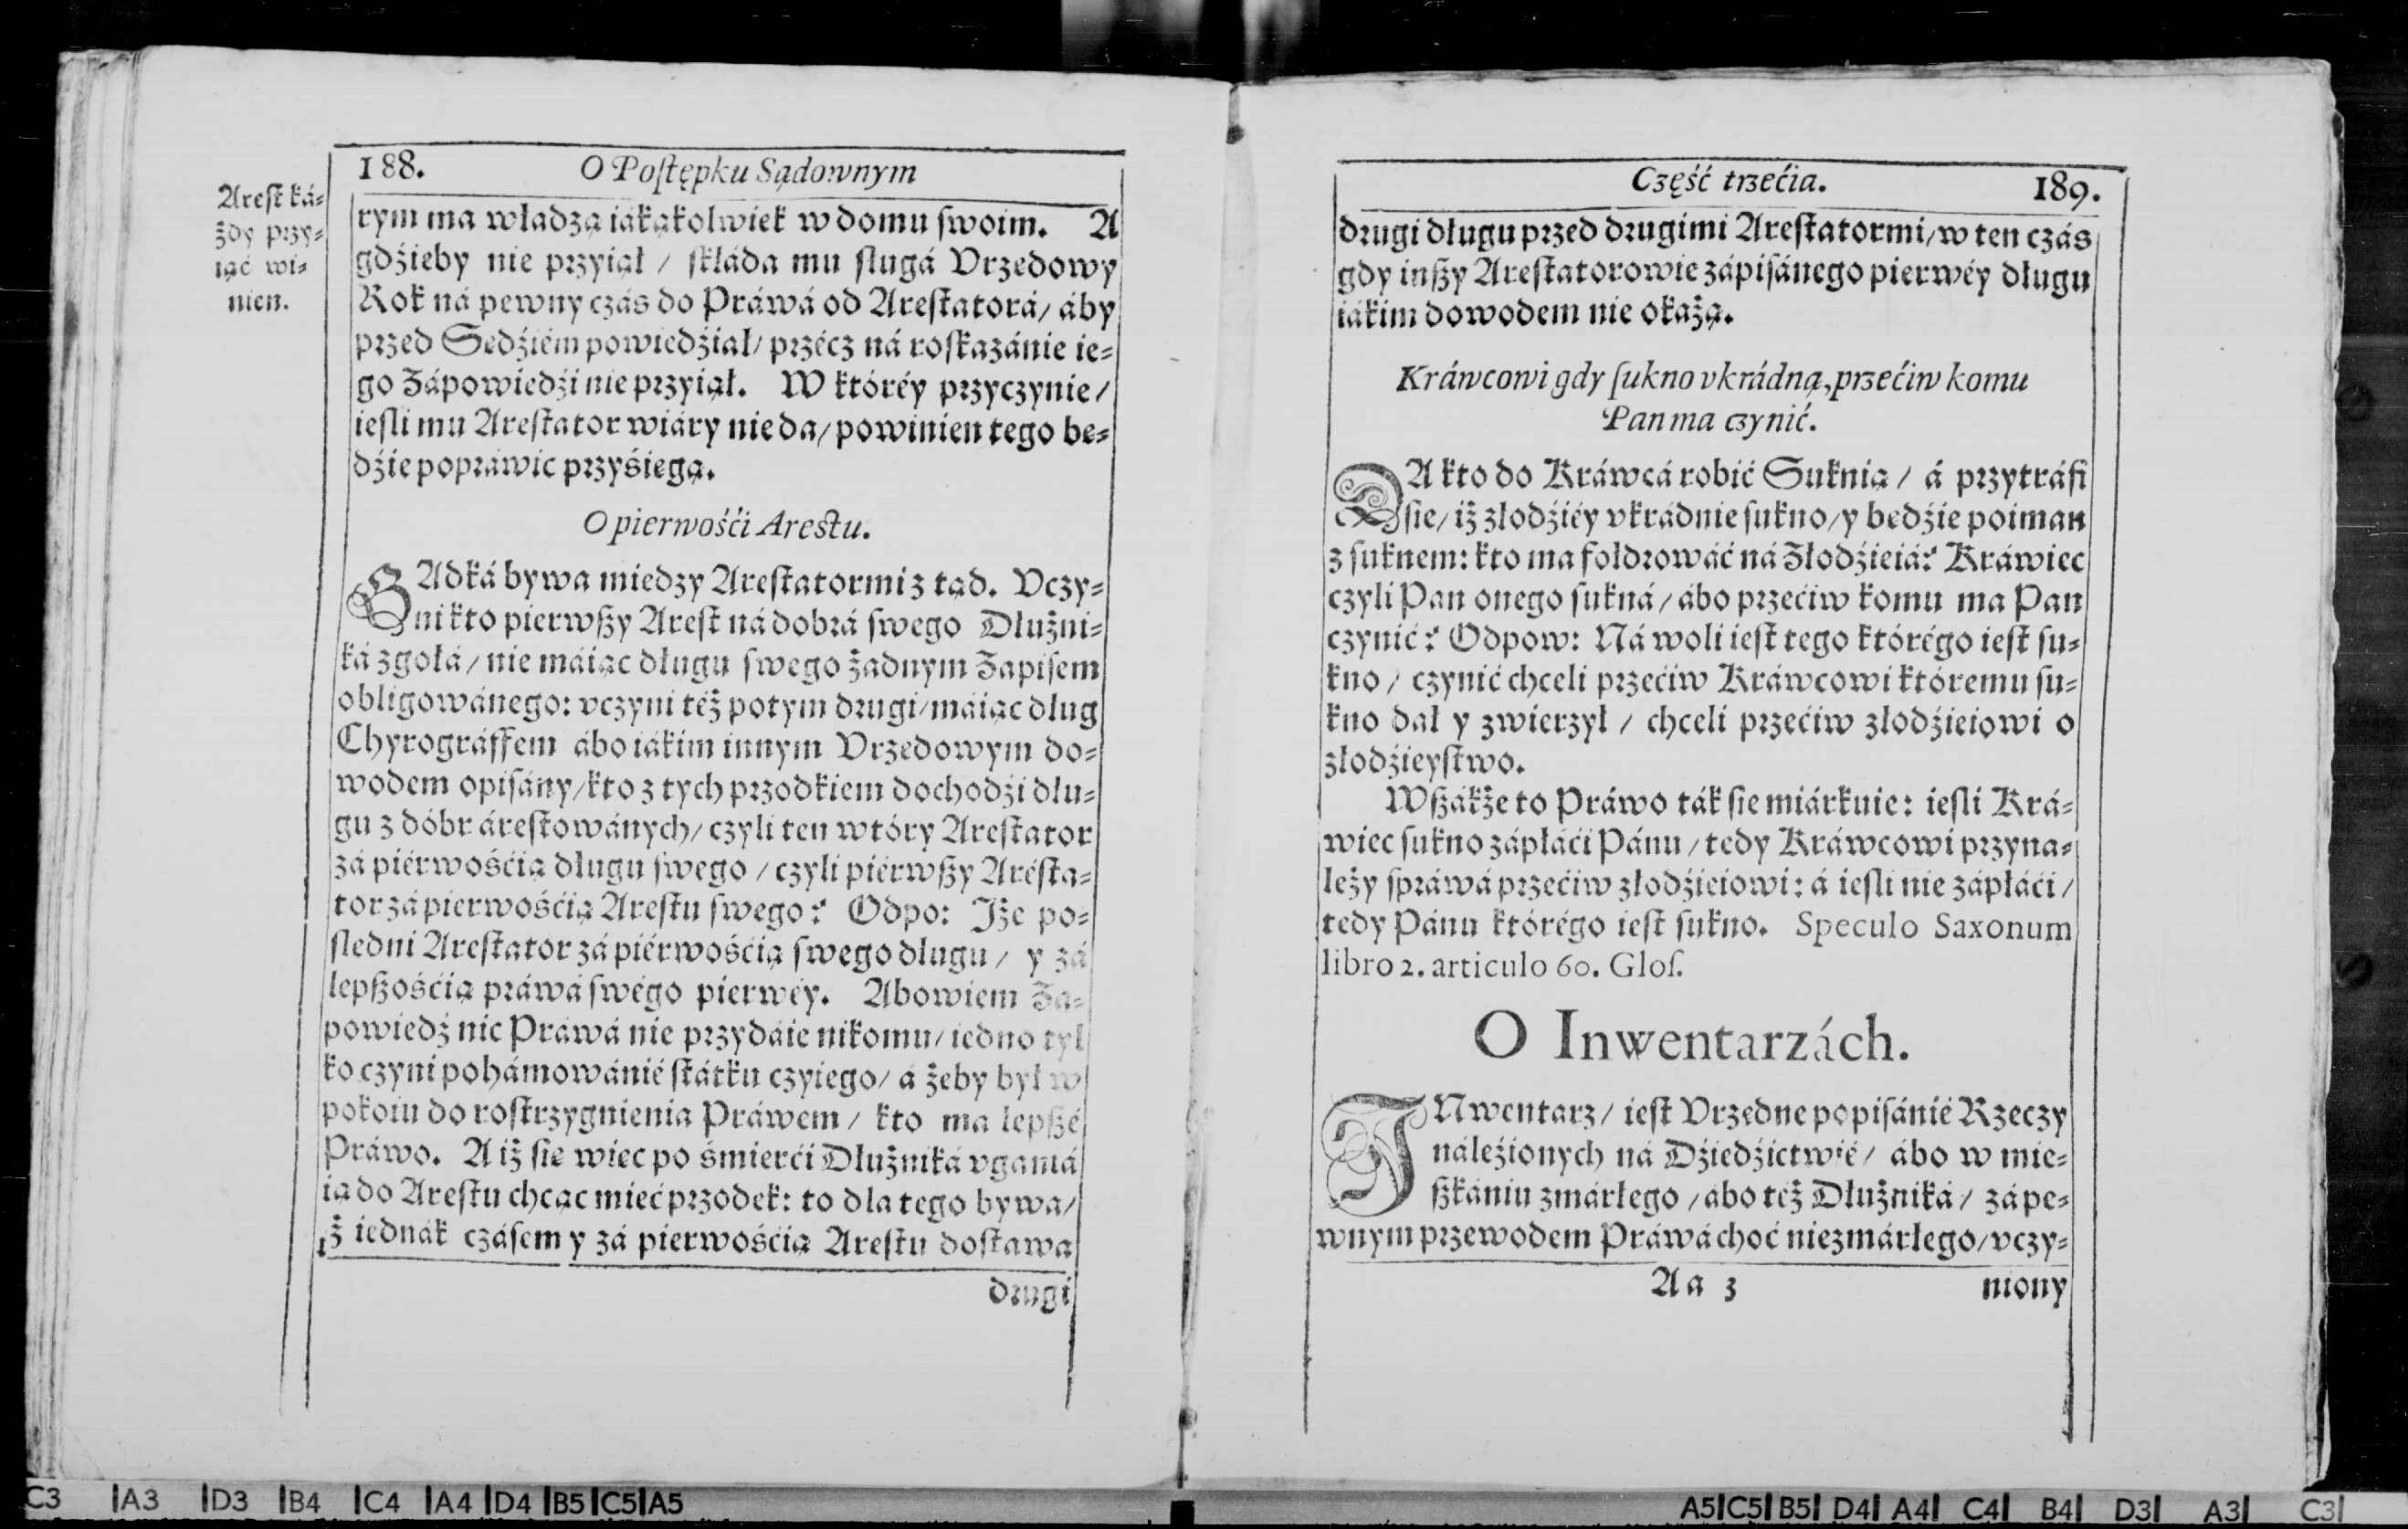 188. O Poſtępku Sądownym
Areſt ká-
żdy przy-
iąć wi-
nien.
rym ma władzą iákąkolwiek w domu ſwoim. A
gdźieby nie przyiął / ſkłáda mu ſlugá Vrzedowy
Rok ná pewny czás do Práwá od Areſtatorá / áby
przed Sedźiém powiedźiał / przécz ná roſkazánie ie-
go Zápowiedźi nie przyiął. W któréy przyczynie /
ieſli mu Areſtator wiáry nie da / powinien tego be-
dźie popráwic przyśięgą.
O pierwośći Areſtu.
GAdká bywa miedzy Areſtatormi z tąd. Vczy-
ni kto pierwſzy Areſt ná dobrá ſwego Dłużni-
ká zgołá / nie máiąc długu ſwego żadnym Zapiſem
obligowánego: vczyni téż potym drugi / máiąc dług
Chyrográffem ábo iákim innym Vrzedowym do-
wodem opiſány / kto z tych przodkiem dochodźi dłu-
gu z dóbr áreſtowánych / czyli ten wtóry Areſtator
zá piérwośćią długu ſwego / czyli piérwſzy Aréſta-
tor zá pierwośćią Areſtu ſwego? Odpo: Iże po-
ſledni Areſtator zá piérwośćią ſwego długu / y zá
lepſzośćią práwá ſwégo pierwéy. Abowiem Za-
powiedź nic Práwá nie przydáie nikomu / iedno tyl
ko czyni pohámowánié ſtátku czyiego / á żeby był w
pokoiu do roſtrzygnienia Práwem / kto ma lepſzé
Práwo. A iż ſie wiec po śmierći Dłużniká vgániá
ią do Areſtu chcąc mieć przodek: to dla tego bywa /
iż iednák czáſem y zá pierwośćią Areſtu doſtawa
drugi
Część trzećia. 189.
drugi długu przed drugimi Areſtatormi / w ten czás
gdy inſzy Areſtatorowie zápiſánego pierwéy długu
iákim dowodem nie okażą.
Kráwcowi gdy ſukno vkrádną, przećiw komu
Pan ma czynić.
DA kto do Kráwcá robić Suknią / á przytráfi
ſie / iż złodźiéy vkrádnie ſukno / y bedźie poiman
z ſuknem: kto ma foldrowáć ná Złodźieiá? Kráwiec
czyli Pan onego ſukná / ábo przećiw komu ma Pan
czynić? Odpow: Ná woli ieſt tego którégo ieſt ſu-
kno / czynić chceli przećiw Kráwcowi któremu ſu-
kno dał y zwierzył / chceli przećiw złodźieiowi o
złodźieyſtwo.
Wſzákże to Práwo ták ſie miárkuie: ieſli Krá-
wiec ſukno zápłáći Pánu / tedy Kráwcowi przyna-
leży ſpráwá przećiw złodźieiowi: á ieſli nie zápłáći /
tedy Pánu którégo ieſt ſukno. Speculo Saxonum
libro 2. articulo 60. Gloſ.
O Inwentarzách.
INwentarz / ieſt Vrzędne popiſánié Rzeczy
náleźionych ná Dźiedźictwié / ábo w mie-
ſzkániu zmárłego / ábo téż Dłużniká / zá pe-
wnym przewodem Práwá choć niezmárłego / vczy-
Aa 3 niony
C3 A3 D3 B4 C4 A4 D4 B5 C5 A5
A5 C5 B5 D4 A4 C4 B4 D3 A3 C3